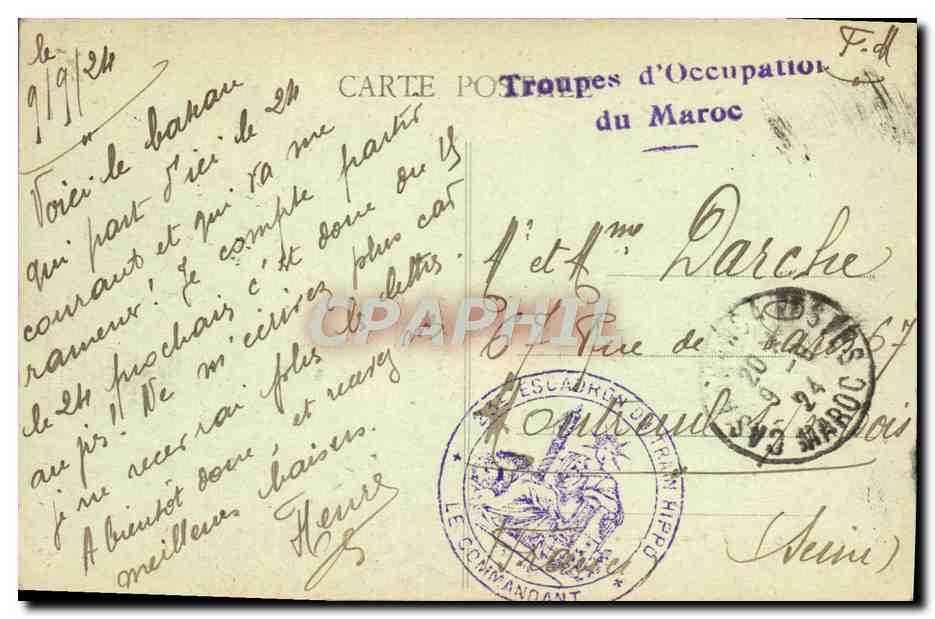 F.M
CARTE POSTALE
Troupes d'Occupation
du Maroc
le
9/9/24
Voici le bateau
qui part d'ici le 24
courant et qui va me
ramener! Je compte partir
le 24 prochais c'est donc du 15
au pis!! Ne m'écrivez plus car
je ne recevrai plus les lettres.
A bientôt donc, et recevez
meilleurs baisers.
Henri
Mr et Mme Darche
67 Rue de Paris 67
Montreuil s/ Bois
(Seine)
France
ESCADRON DU TRAIN HIPPO
LE COMMANDANT
CASABLANCA
MAROC
20
9
24
CPAPHIL